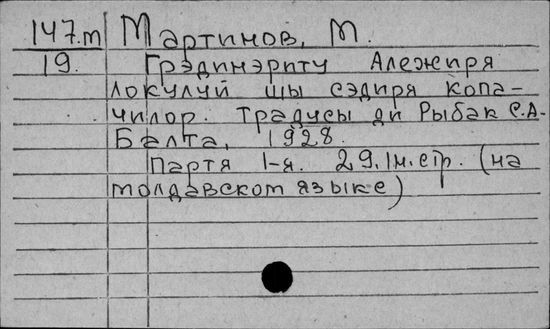 147.m Мартинов, М.
19. Грэдинэриту Алежиря
локулуй шы сэдиря копа-
чилор. Традусы ди Рыбак С.А.
Балта, 1928.
Партя 1-я. 29.1н.стр. (на
молдавском языке)